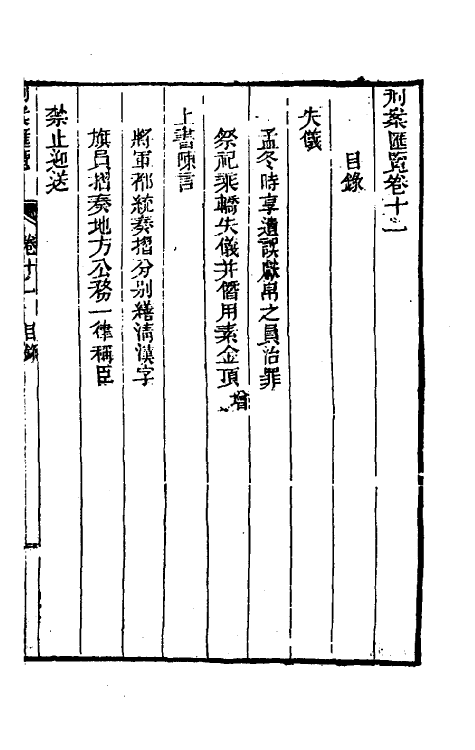 刑案匯覽卷十二
目錄
失儀
孟冬時享遺誤獻帛之員治罪
祭祀乘轎失儀并僭用素金頂 增
上書陳言
將軍都統奏摺分別繕清漢字
旗員摺奏地方公務一律稱臣
禁止迎送
刑案匯覽 卷十二 目錄